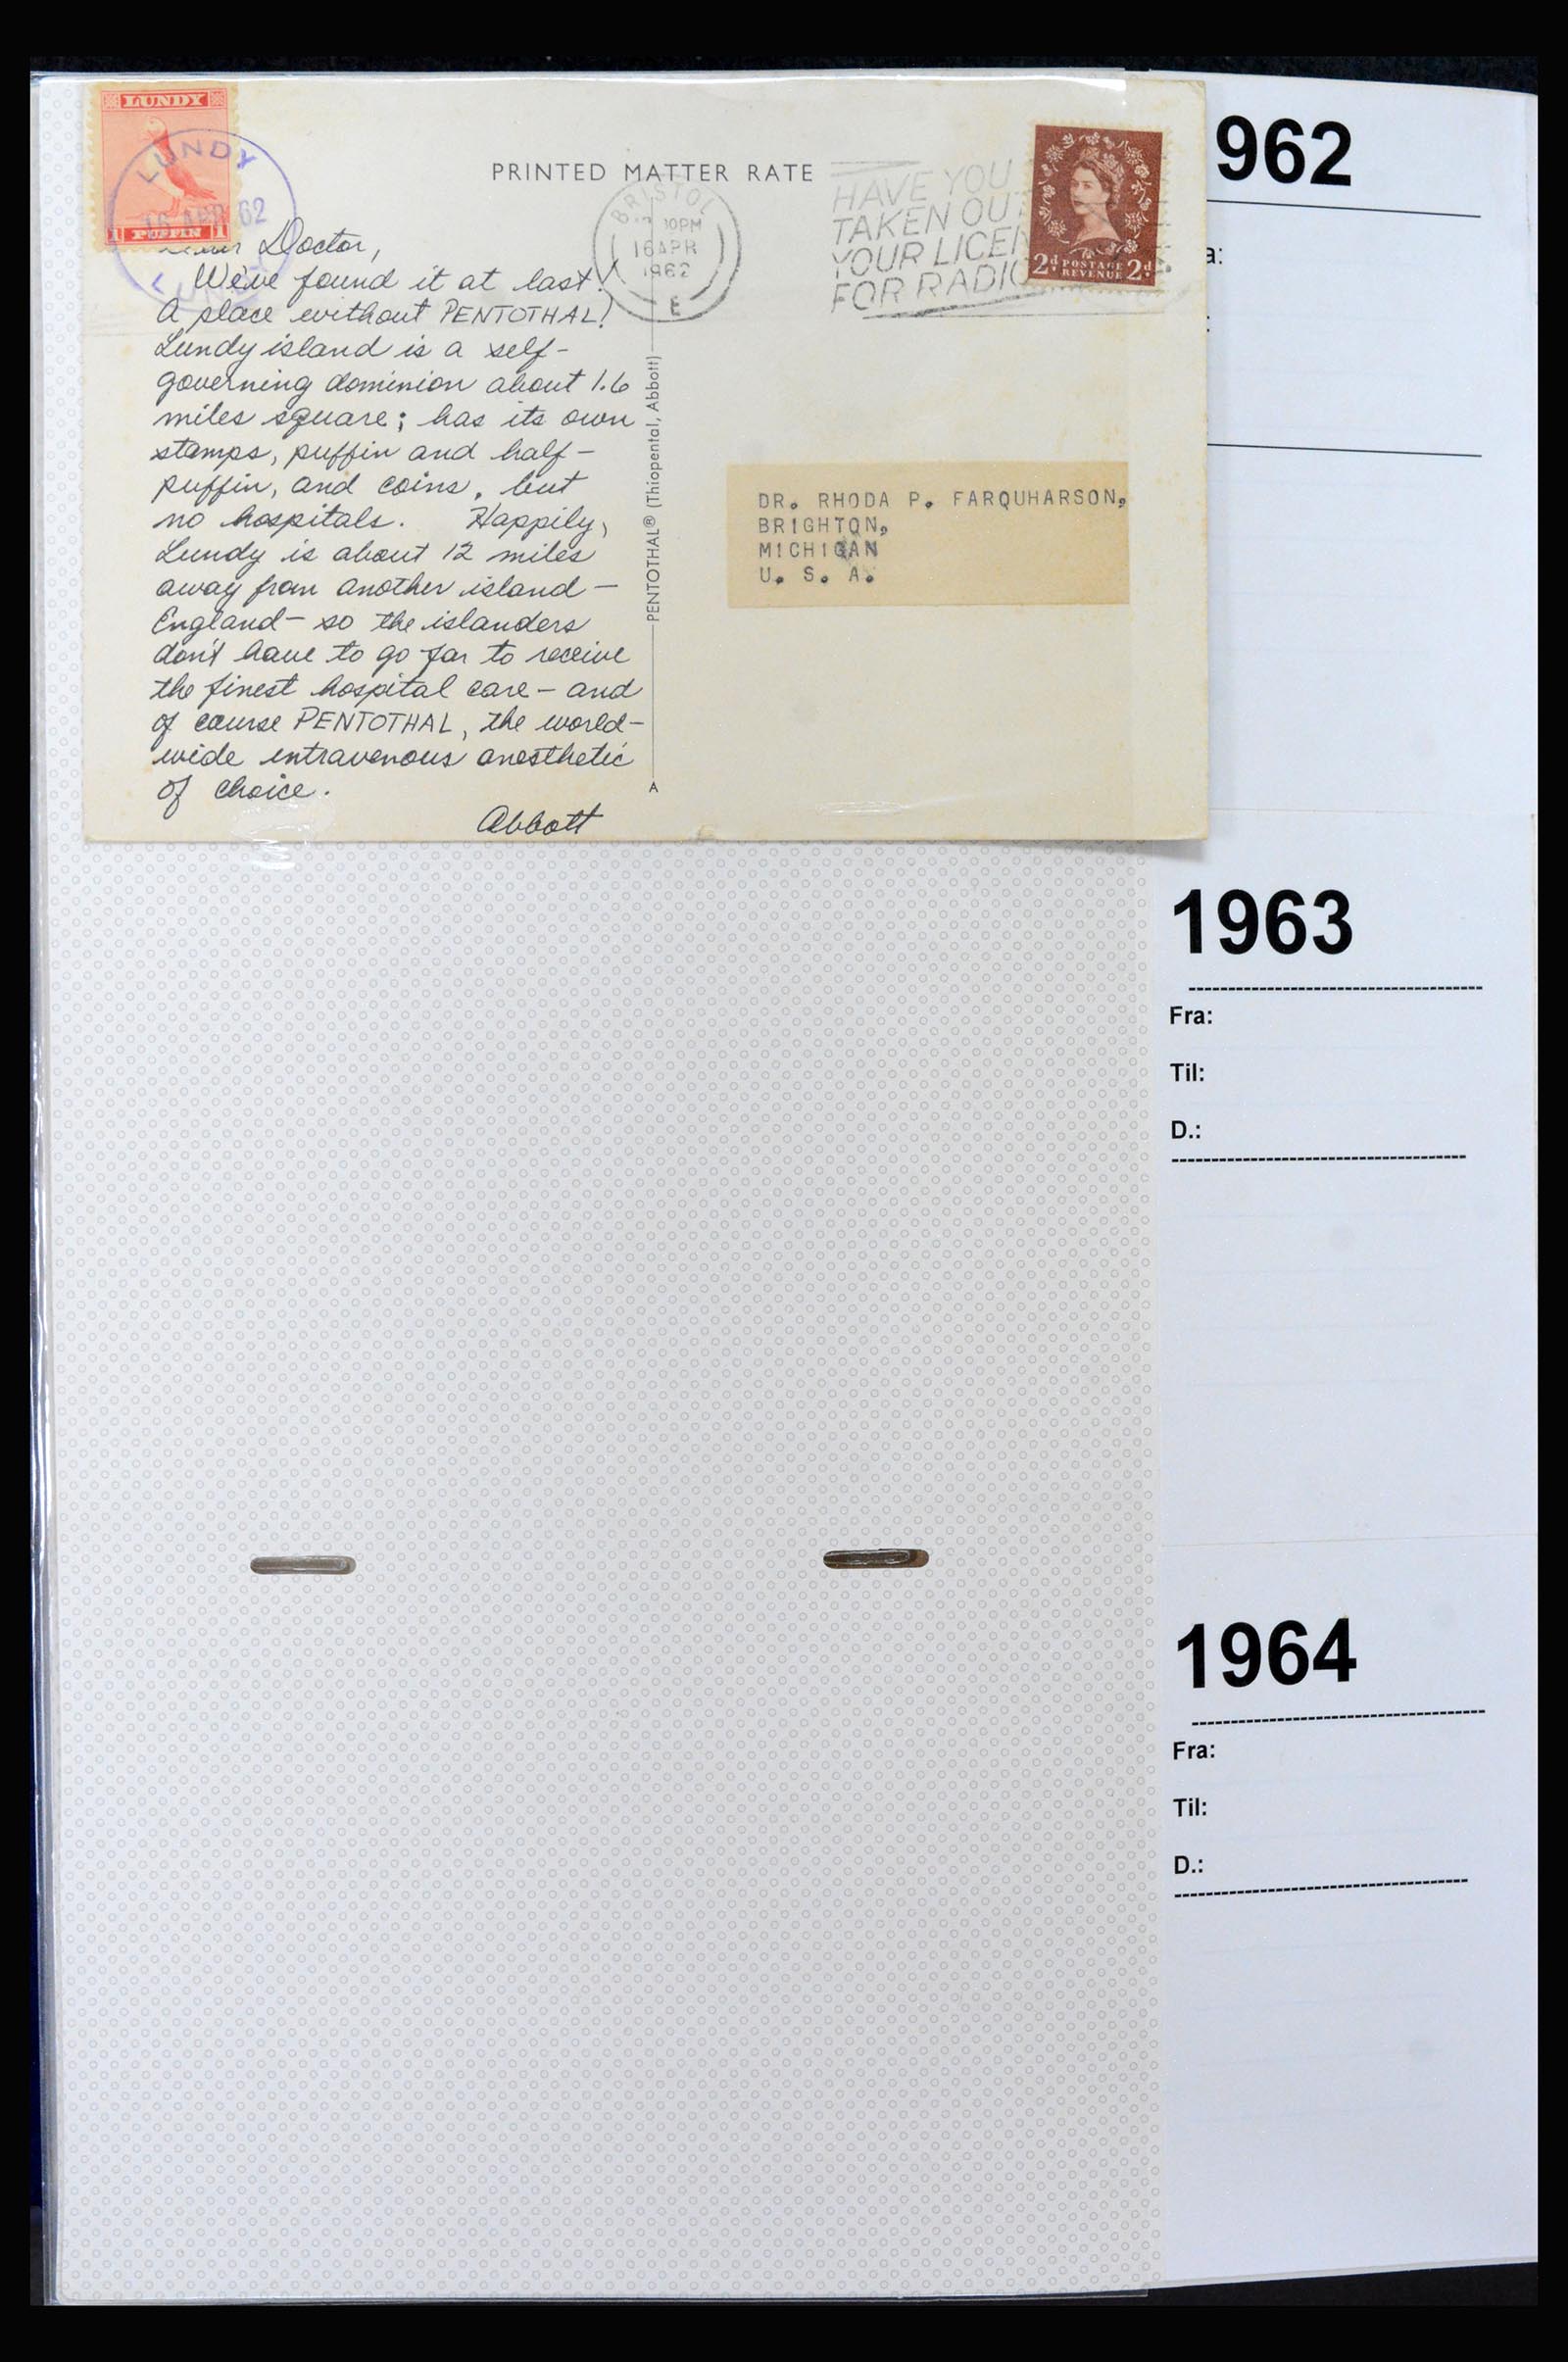 LUNDY
LUNDY
16 APR 62
1 PUFFIN 1
PRINTED MATTER RATE
BRISTOL
30PM
16 APR
1962
E
HAVE YOU
TAKEN OU
YOUR LICEN
FOR RADIO
2d POSTAGE REVENUE 2d
Doctor,
We've found it at last!
A place without PENTOTHAL!
Lundy island is a self-
governing dominion about 1.6
miles square; has its own
stamps, puffin and half-
puffin, and coins, but
no hospitals. Happily,
Lundy is about 12 miles
away from another island —
England — so the islanders
don't have to go far to receive
the finest hospital care — and
of course PENTOTHAL, the world-
wide intravenous anesthetic
of choice.
Abbott
PENTOTHAL® (Thiopental, Abbott)
A
DR. RHODA P. FARQUHARSON,
BRIGHTON,
MICHIGAN
U. S. A.
962
a:
:
1963
Fra:
Til:
D.:
1964
Fra:
Til:
D.: